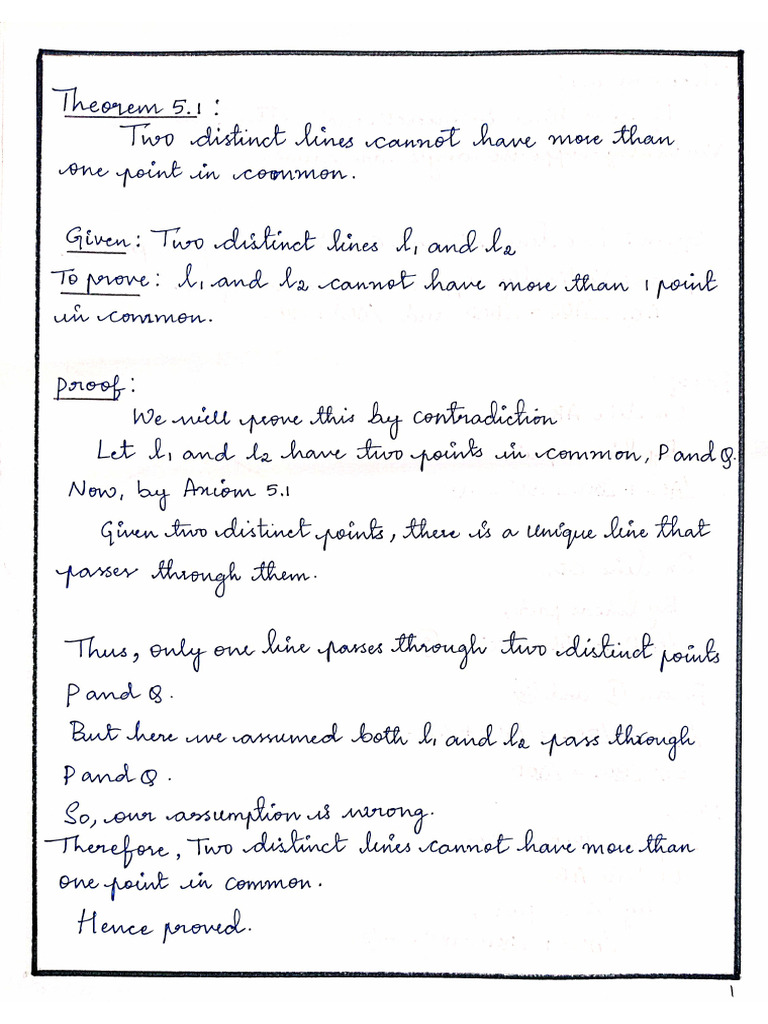 Theorem 5.1:
Two distinct lines cannot have more than
one point in coommon.
Given: Two distinct lines l₁ and l₂
To prove: l₁ and l₂ cannot have more than 1 point
in common.
proof:
We will prove this by contradiction
Let l₁ and l₂ have two points in common, P and Q.
Now, by Axiom 5.1
Given two distinct points, there is a unique line that
passes through them.
Thus, only one line passes through two distinct points
P and Q.
But here we assumed both l₁ and l₂ pass through
P and Q.
So, our assumption is wrong.
Therefore, Two distinct lines cannot have more than
one point in common.
Hence proved.
1